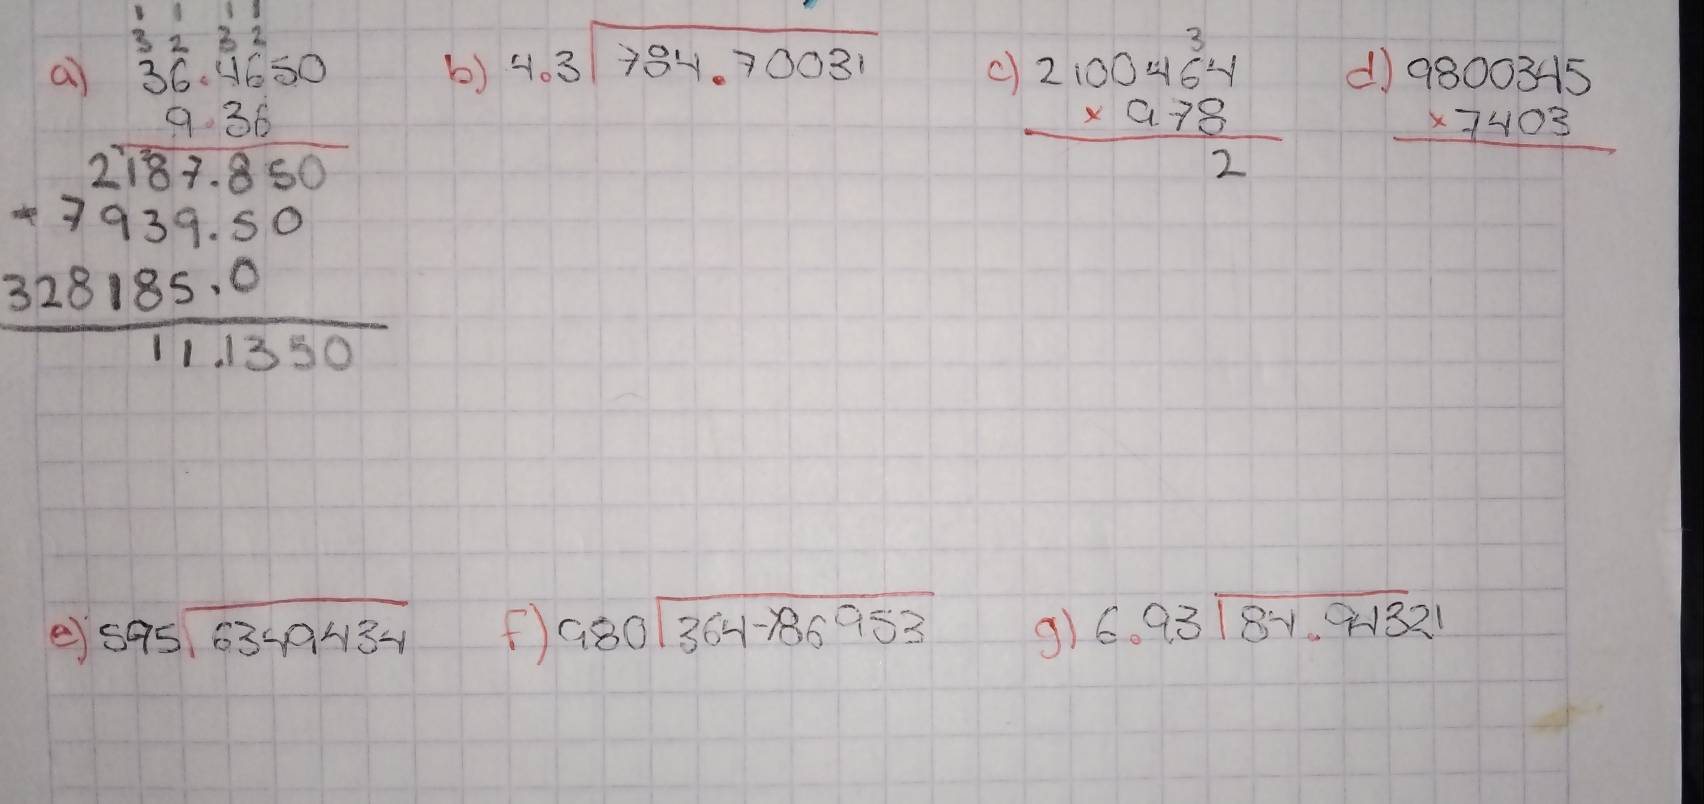 3 2 3 2
a) 36.4650
9.36
2187.850
+7939.50
328185.0
11.1350
b) 4.3 784.70031
3
c) 2100464
x 978
2
d) 9800345
x 7403
e) 595 6349434
f) 980 364786953
g) 6.93 84.94321